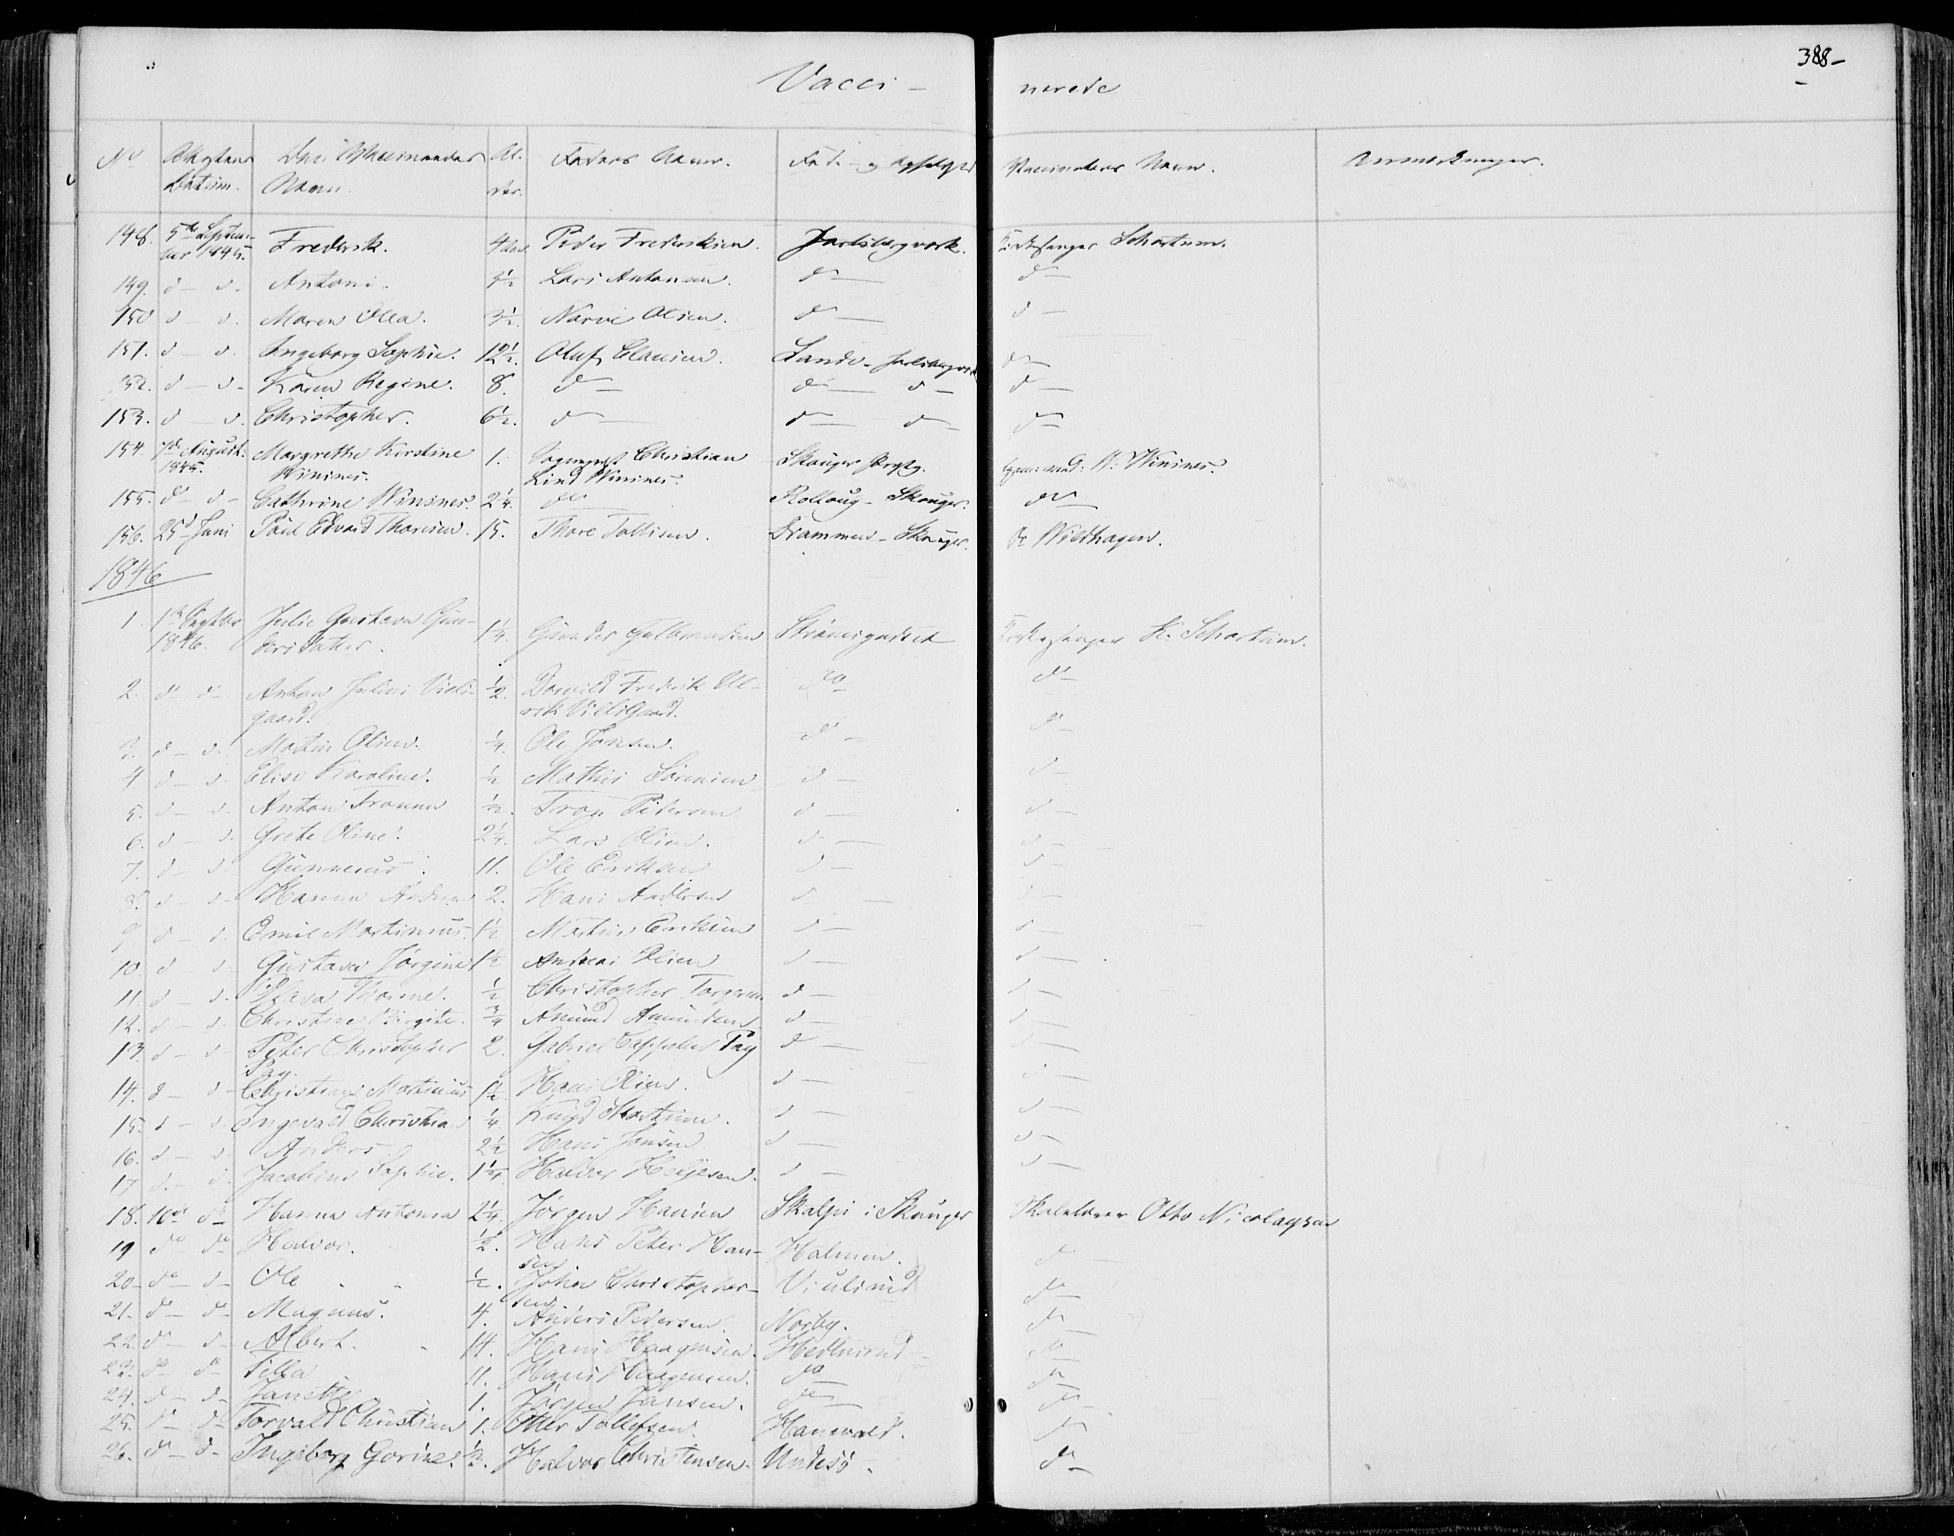 388-
Vacci- nerede
No Attestens Datum. Den Vaccineredes Navn. Al- der. Faders Navn. Føde- og Vaccinateurs Navn. Anmærkninger.
148. 5te Septem- ber 1845. Frederik. 4 Peder Frederiksen. Jarlsbergverk. Kirkesanger Schartum.
149. d- d- Antoni. Lars Antonsen. do do
150 d- d. Maren Olea. 3½. Narve Olsen. do d-
151. d- d. Ingeborg Sophie. 12½. Oluf Clausen. Sande- Jarlsbergverk do
52. d- d- Karen Regine. 8. do do d- d-
153. d- d. Christopher. 6½. do do do do
154. 7de August. 1845. Margrethe Kirstine Winsnes. 1. Christian Lind Winsnes. Skouger Prstg. W: Winsnes.
155. do d- Cathrine Winsnes. 2¼. do Rollaug- Skouger. do
156. 25d Juni Paul Edvard Thoresen. 15. Thore Tollisen. Drammen- Skouger. Dr Wildhagen.
1846
1. 1ste Septbr 1846. Julie Gustava Gun- dersdatter. 1¼. Gunder Gulbrandsen Strømsgodset Kirkesanger K. Schartum.
2. do do Anton Julius Villi- gaard. ½. Frederik Ul- rik Villigaard. do do
3. d- d. Martin Olsen. ¼. Ole Jansen. do do
4 d- d- Elise Karoline. ½ Mathis Sørensen d- d-
5. d- d- Anton ½. Tron Pedersen d- d-
6. d- d. Grete Oline. 2¼. Lars Olsen. d- d-
7. d- d Gunnerus. 11. Ole Eriksen d- d-
8. d- d- Hanna Andrea 2. Hans Andersen d- d-
9. d- d. Emil Martinius. 1½ Martin Eriksen d- d-
10. d d. Gustava Jørgine 1½ Andreas Olsen d- d-
11. d- d. ½ Christopher Torgersen d- d-
12. d- d. Christine Birgite. ¾ Amund Amundsen d- d-
13. d- d- Peter Christopher Pay. 2. Gabriel Cappelen Pay d- d-
14. d- d- Christian Martinius 1½. Hans Olsen. d- d-
15. d- d- Ingevald Christian ¼. Knud Schartum. d- d-
16. d- d- Anders 2½ Hans Jansen d- d-
17 d- d- Jacobine Sophie. 1¼ Halvor Helgesen. d- d-
18. 10de do Hanna Antonia 2¼. Jørgen Hansen Skalpi i Skouger Skolelærer Otto Nicolaysen
19 do do Halvor. ½. Hans Peter Han- sen Holmen. d-
20- do- d- Ole ½. Johan Christopher- sen do
21- do- do- Magnus. 4. Anders Pedersen. Norby. do
22. do d- Albert. 14. Hans Haagensen. do
23. do do Silla 11. Hans Haagensen. do do
24. d- d- Janette 1. Jørgen Jansen. do do
25. d- d- Torvald Christian 1. Otter Tollefsen. Hanevald. do
26. do- d- Ingeborg Gorine. ½. Halvor Christensen. Undesø. do